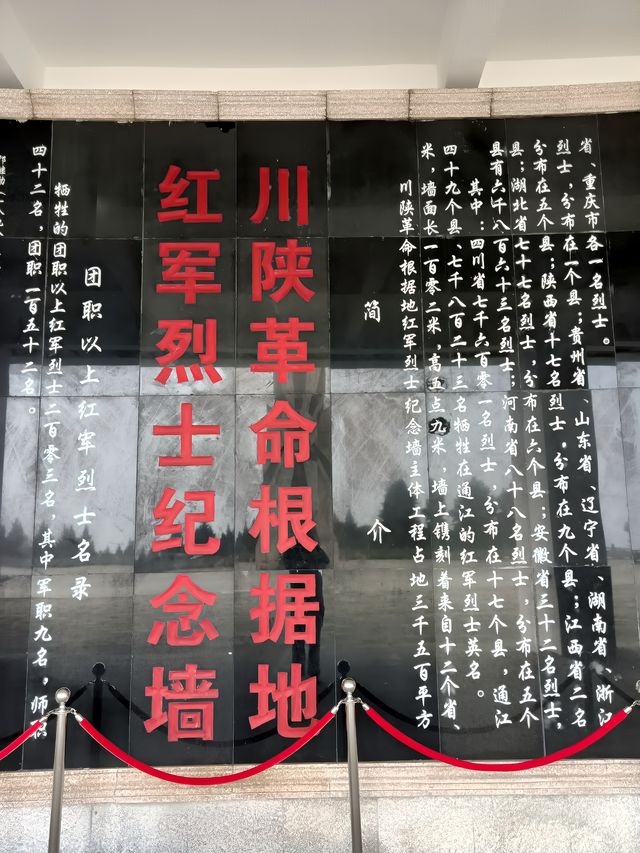 川陕革命根据地
红军烈士纪念墙
简介
川陕革命根据地红军烈士纪念墙主体工程占地三千五百平方
米，墙面长一百零二米，高五点九米，墙上镌刻着来自十二个省、
四十九个县、七千八百二十三名牺牲在通江的红军烈士英名。
其中：四川省七千六百零一名烈士，分布在十七个县，通江
县有六千八百六十三名烈士；河南省八十八名烈士，分布在五个
县；湖北省七十七名烈士，分布在六个县；安徽省三十二名烈士，
分布在五个县；陕西省十七名烈士，分布在九个县；江西省二名
烈士，分布在一个县；贵州省、山东省、辽宁省、湖南省、浙江
省、重庆市各一名烈士。
团职以上红军烈士名录
牺牲的团职以上红军烈士二百零三名，其中军职九名，师职
四十二名，团职一百五十二名。